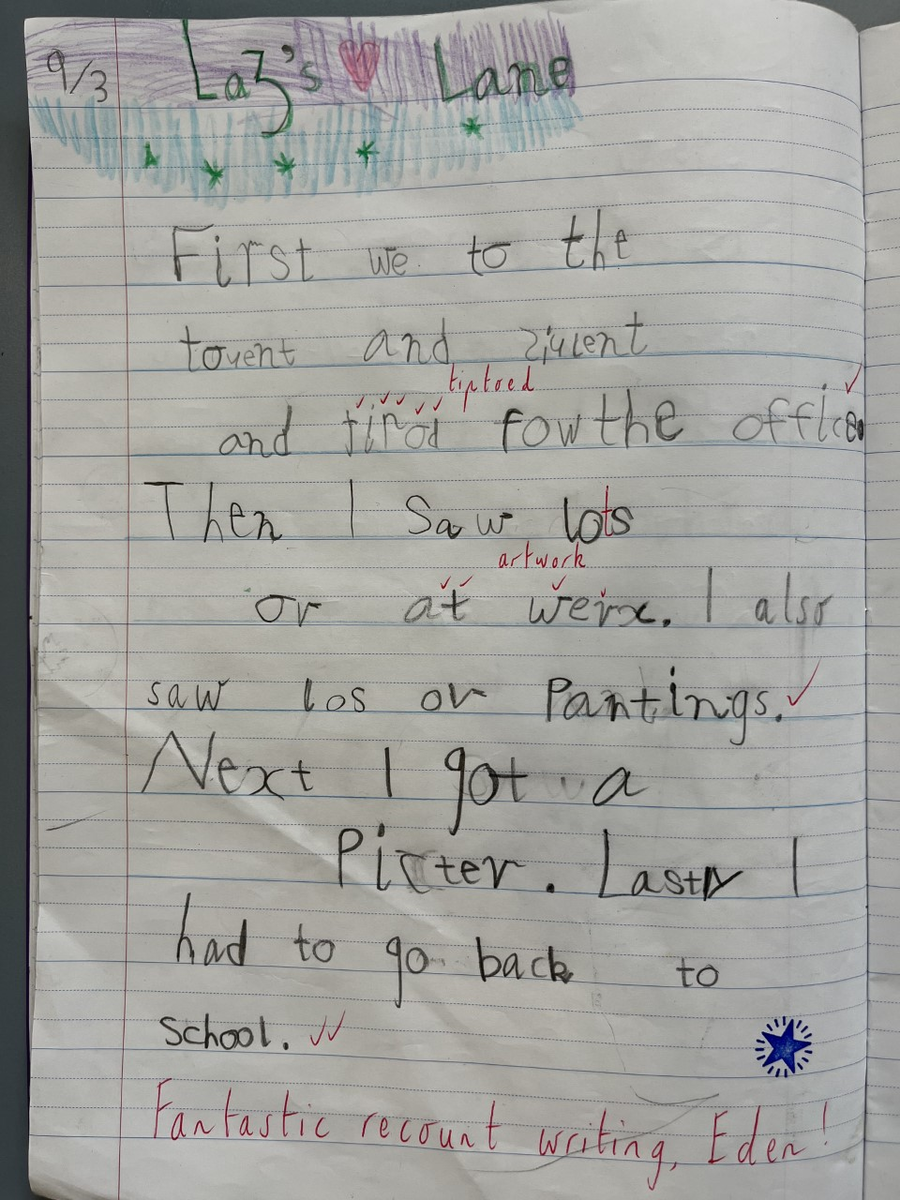 9/3 Laz's Lane
First we to the
touent and
tiptoed
and fow the office.
Then I saw lots
artwork
or at werx. I also
saw los ov Pantings.
Next I got a
Picter. Lastly I
had to go back to
School.
Fantastic recount writing, Eden!